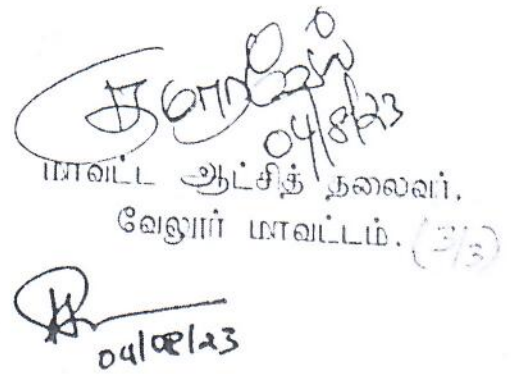 04/8/23
மாவட்ட ஆட்சித் தலைவர்.
வேலூர் மாவட்டம். (3/3)
04/08/23